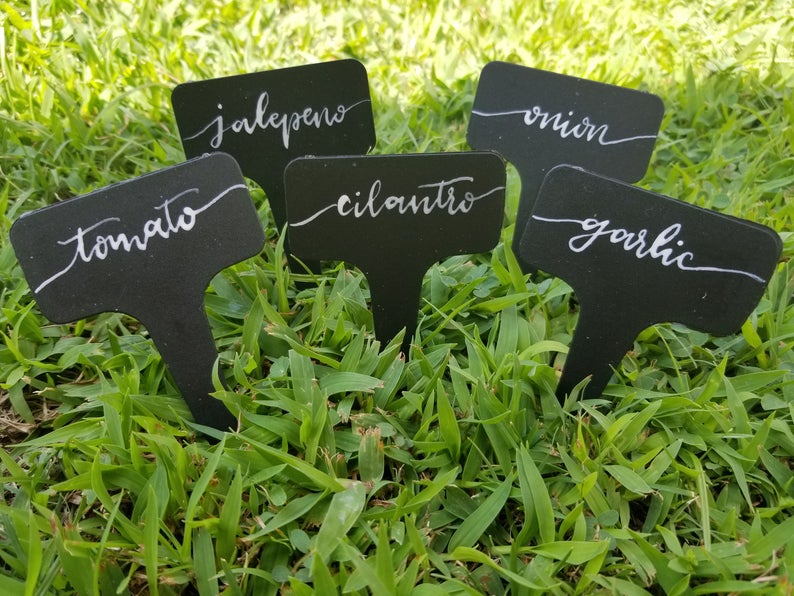 jalepeno
onion
tomato
cilantro
garlic